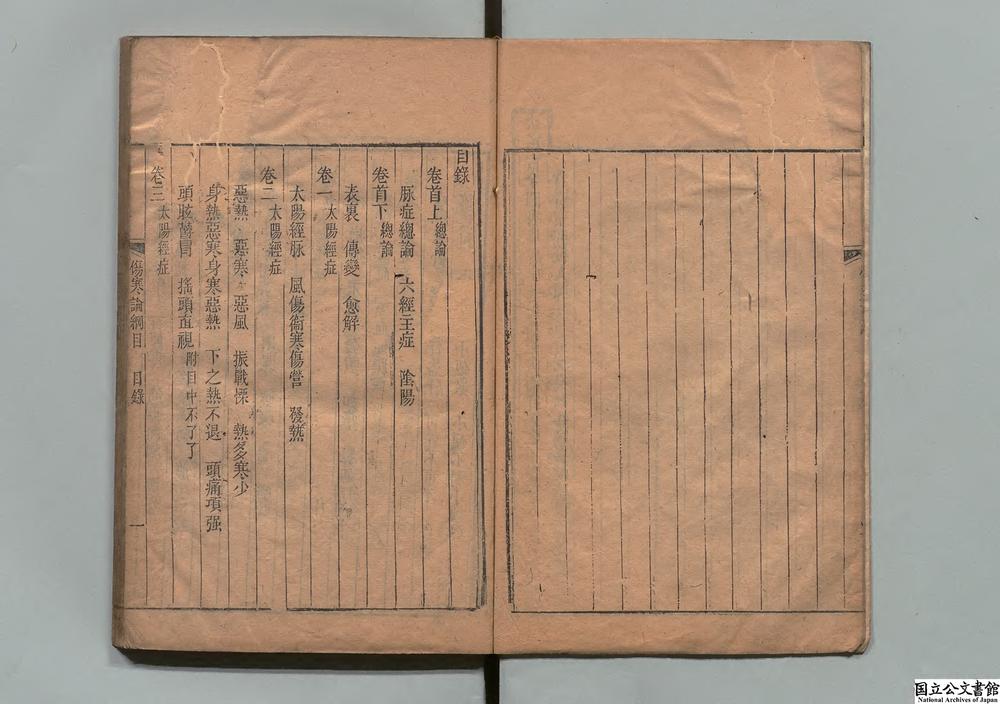 目錄
卷首上 總論
脉症總論 六經主症 陰陽
卷首下 總論
表裏 傳變 愈解
卷一 太陽經症
太陽經脉 風傷衞寒傷營 發熱
卷二 太陽經症
惡熱 惡寒 惡風 振戰慄 熱多寒少
身熱惡寒身寒惡熱 下之熱不退 頭痛項强
頭眩鬱冒 搖頭直視 附目中不了了
卷三 太陽經症
傷寒論綱目 目錄 一
国立公文書館
National Archives of Japan